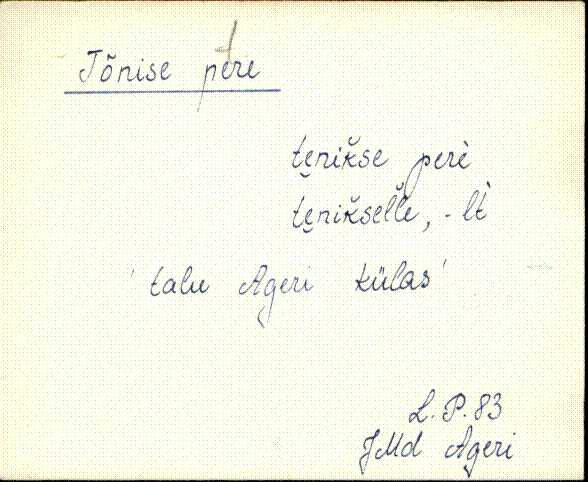 Tõnise pere
te̮nikše perè
te̮nikšelle, -lt̀
' talu Ageri külas'
L.P.83
JMd Ageri